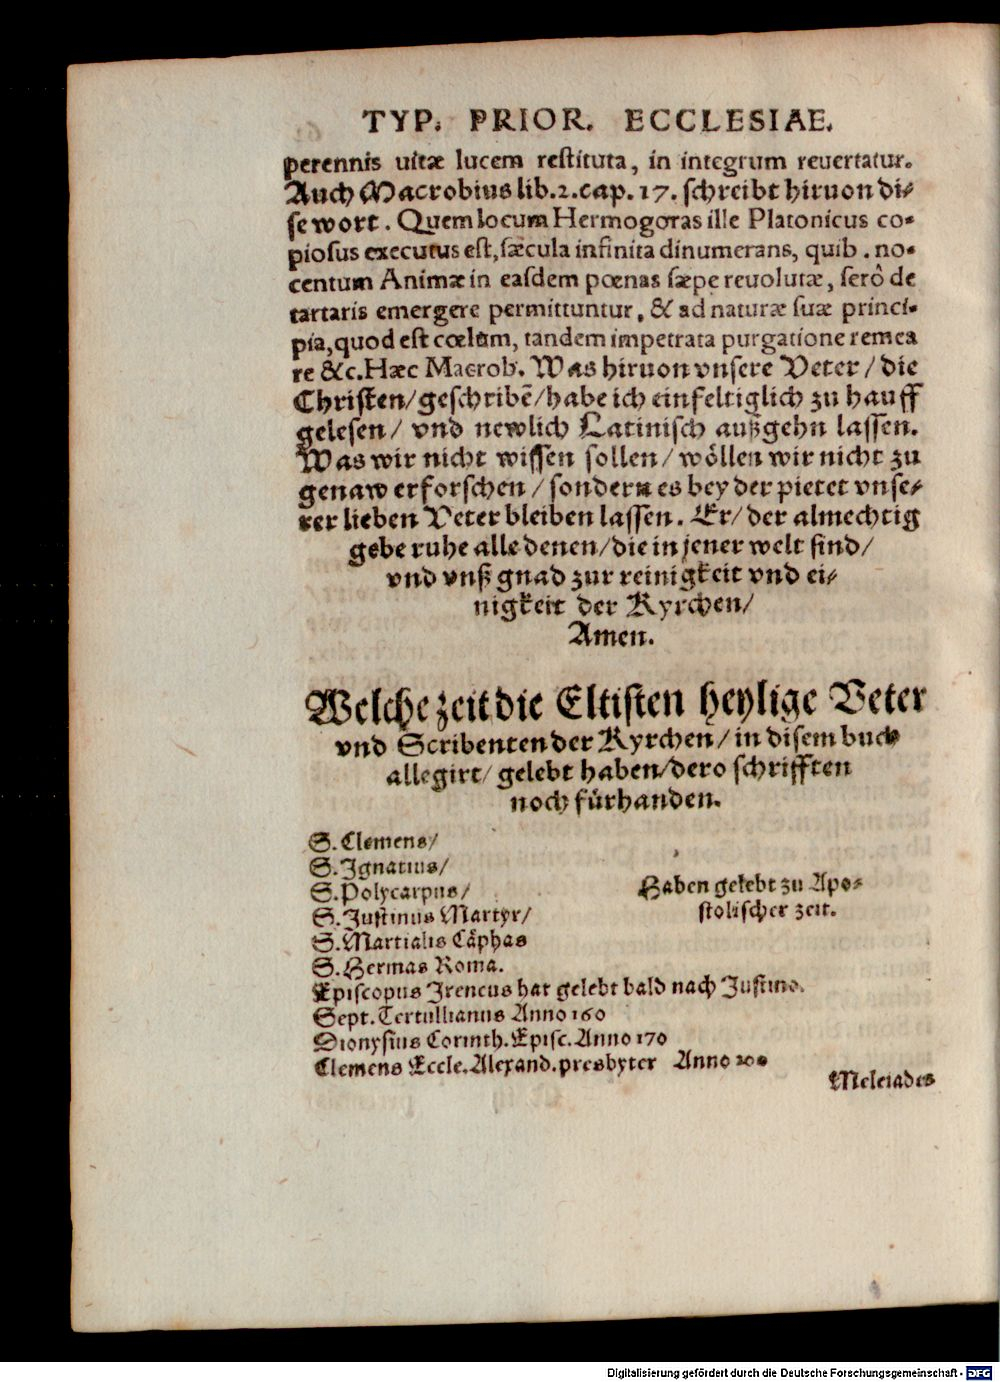 TYP. PRIOR. ECCLESIAE.
perennis uitæ lucem restituta, in integrum reuertatur.
Auch Macrobius lib.2.cap. 17. schreibt hiruon di⸗
se wort. Quem locum Hermogoras ille Platonicus co⸗
piosus executus est, sæcula infinita dinumerans, quib. no⸗
centum Animæ in easdem pœnas sæpe reuolutæ, serô de
tartaris emergere permittuntur, & ad naturæ suæ princi⸗
pia, quod est cœlum, tandem impetrata purgatione remea
re &c. Hæc Macrob. Was hiruon vnsere Veter/ die
Christen/ geschribē/ habe ich einfeltiglich zu hauff
gelesen/ vnd newlich Latinisch außgehn lassen.
Was wir nicht wissen sollen/ wöllen wir nicht zu
genaw erforschen/ sondern es bey der pietet vnse⸗
rer lieben Veter bleiben lassen. Er/ der almechtig
gebe ruhe alle denen/ die in jener welt sind/
vnd vnß gnad zur reinigkeit vnd ei⸗
nigkeit der Kyrchen/
Amen.
Welche zeit die Eltisten heylige Veter
vnd Scribenten der Kyrchen/ in disem buch
allegirt/ gelebt haben/ dero schrifften
noch fürhanden.
S. Clemens/
S. Ignatius/
S. Polycarpus/
S. Justinus Martyr/
S. Martialis Cäphas
S. Hermas Roma.
Haben gelebt zu Apo⸗
stolischer zeit.
Episcopus Ireneus hat gelebt bald nach Justino.
Sept. Tertullianus Anno 160
Dionysius Corinth. Episc. Anno 170
Clemens Eccle. Alexand. presbyter Anno 200
Meleiades
Digitalisierung gefördert durch die Deutsche Forschungsgemeinschaft - DFG